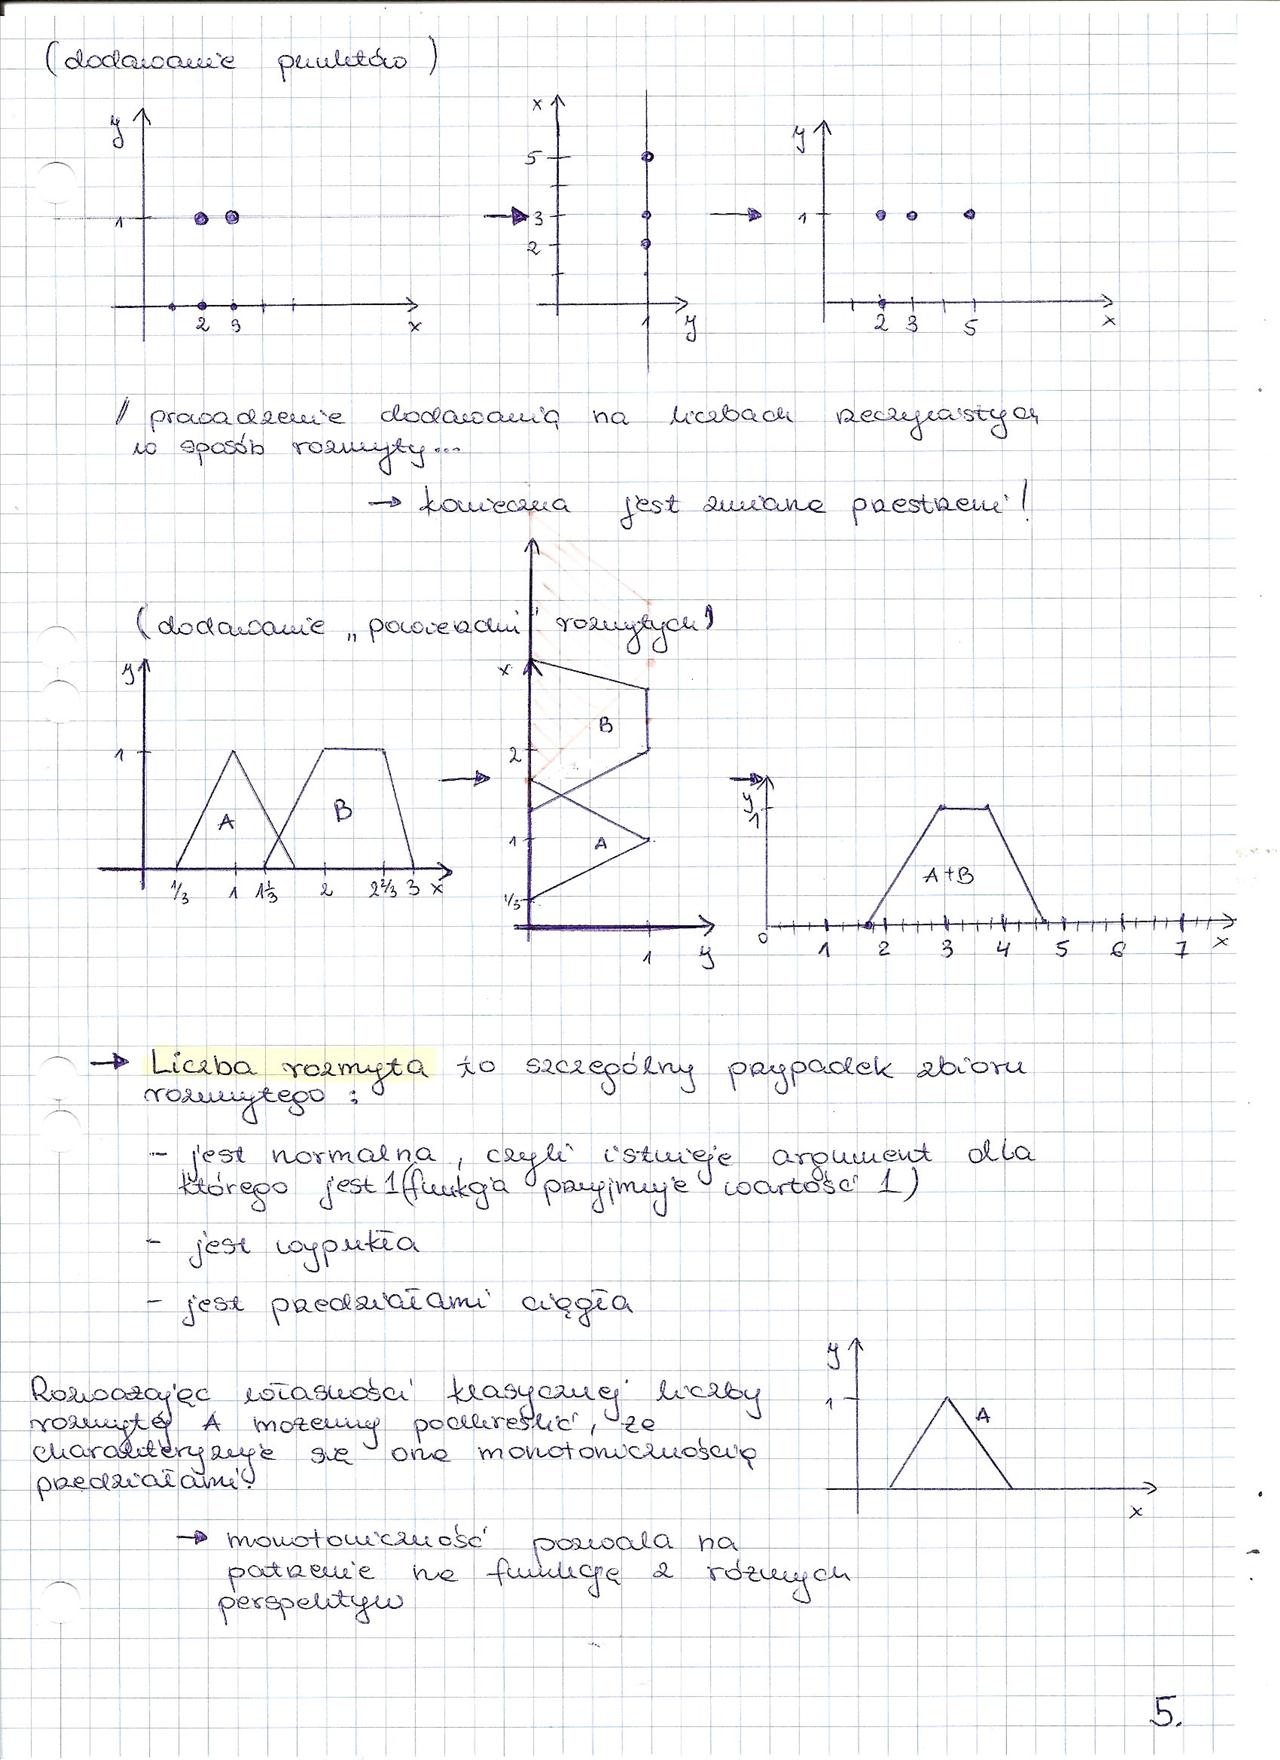 (dodawanie punktów)
y
1
2 3
x
x
5
3
2
1
y
y
1
2 3 5
x
// prowadzenie dodawania na liczbach rzeczywistych
w sposób rozmyty...
→ konieczna jest zmiana przestrzeni!
(dodawanie „powierzchni" rozmytych)
y
1
A
B
1/3 1 1 1/3 2 2 2/3 3 x
x
B
2
1
A
1/3
1 y
y
1
A+B
0 1 2 3 4 5 6 7 x
→ Liczba rozmyta to szczególny przypadek zbioru
rozmytego :
- jest normalna, czyli istnieje argument dla
którego jest 1 (funkcja przyjmuje wartość 1)
- jest wypukła
- jest przedziałami ciągła
y
1
A
x
Rozważając własności klasycznej liczby
rozmytej A możemy podkreślić, że
charakteryzuje się ona monotonicznością
przedziałami.
→ monotoniczność pozwala na
patrzenie na funkcję z różnych
perspektyw
5.